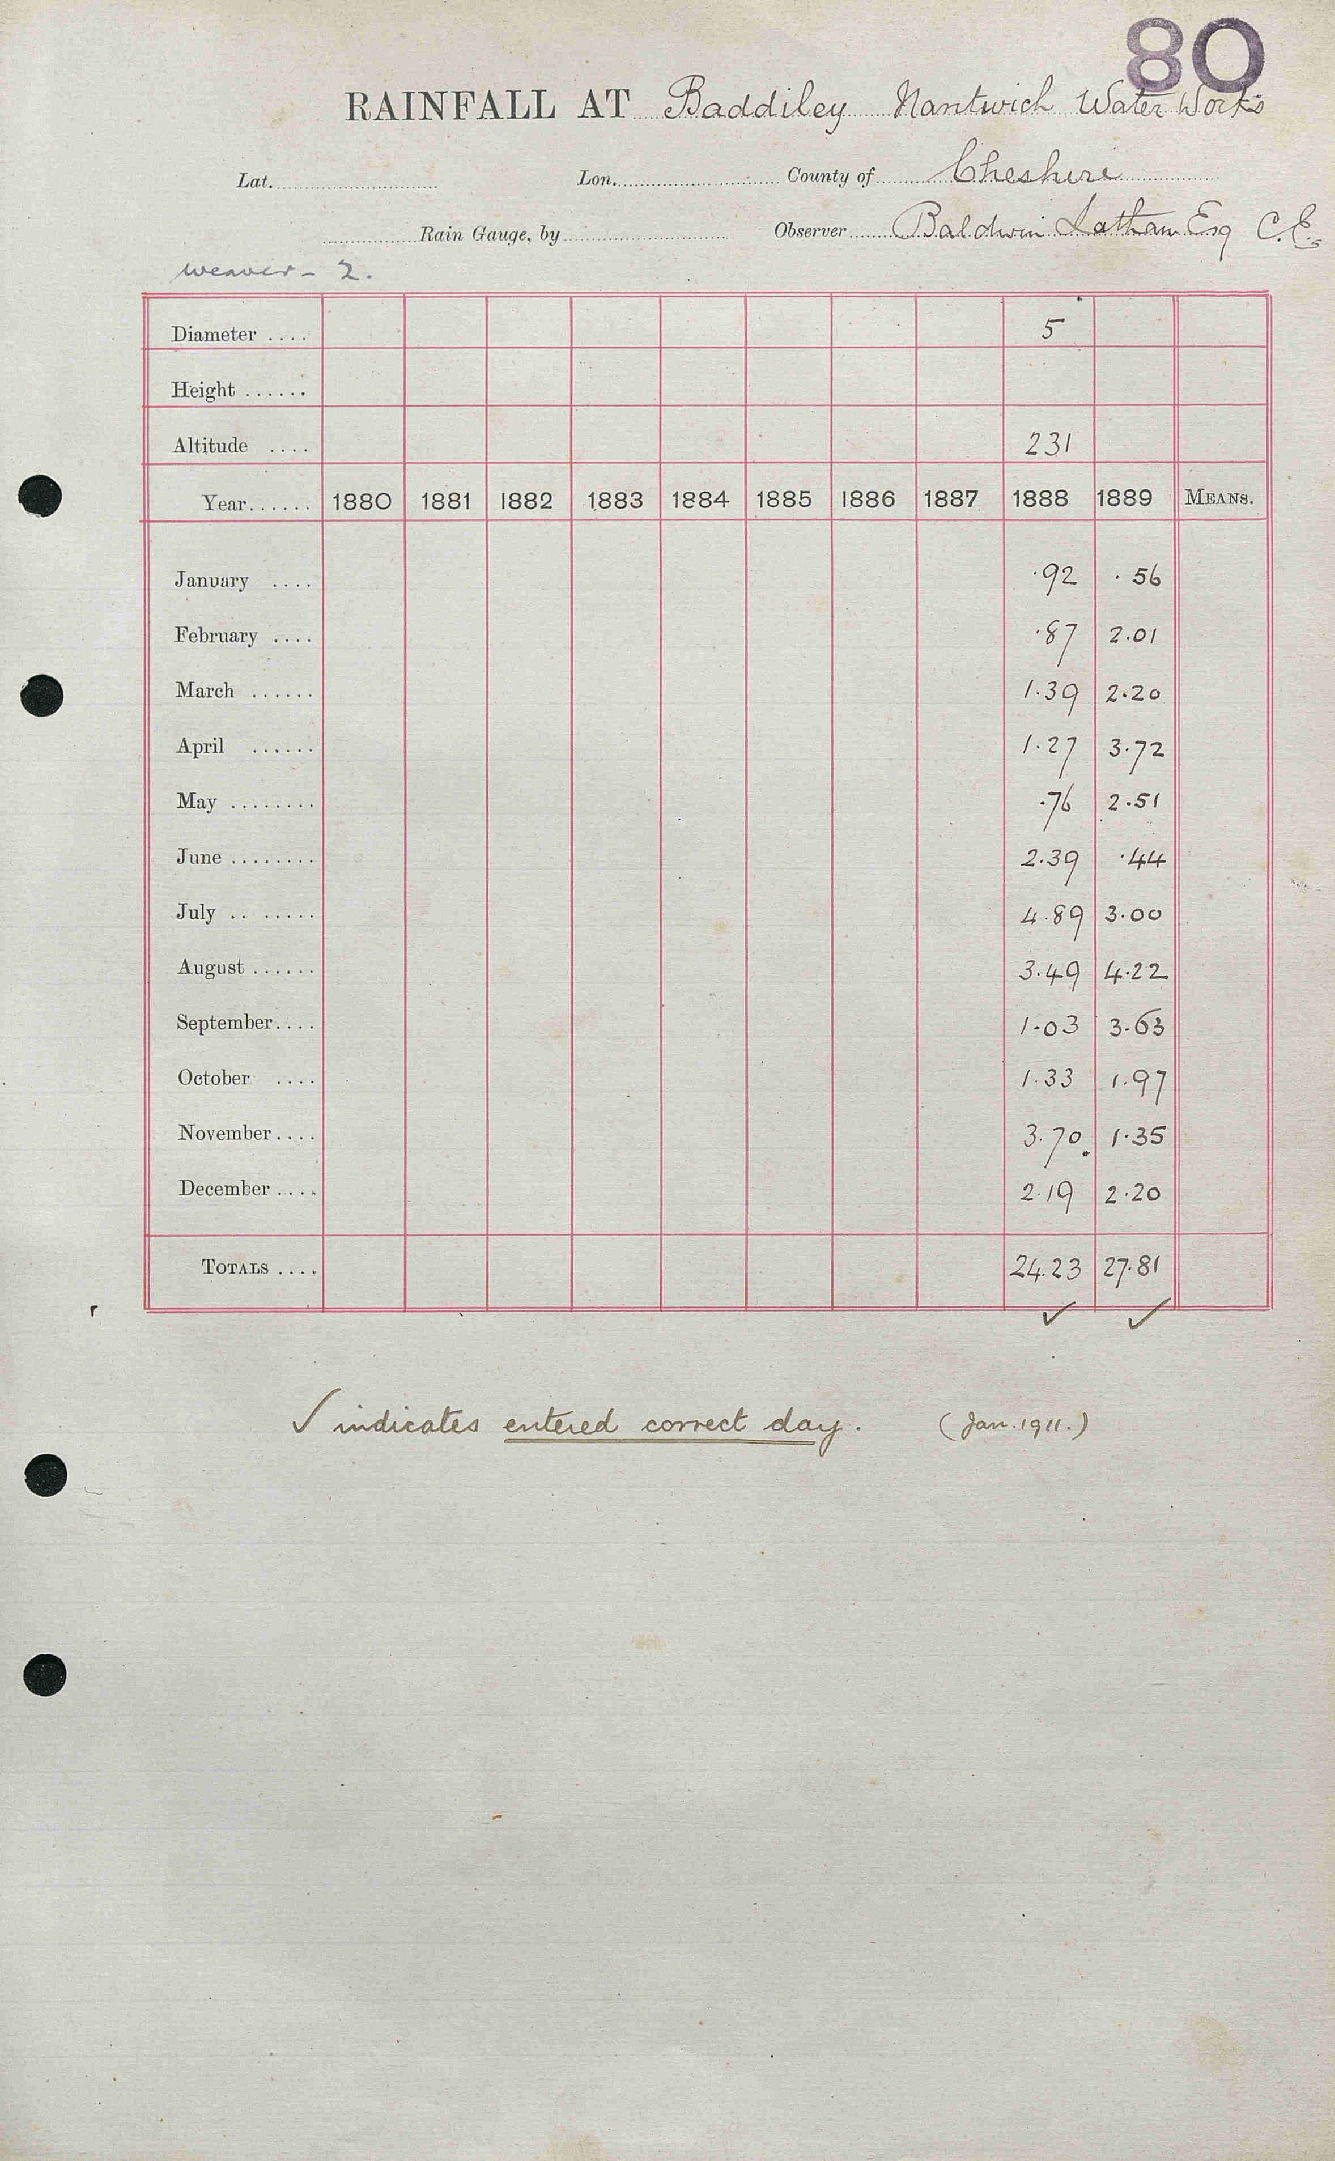 80
RAINFALL AT Baddiley Nantwich Water Works
Lat. Lon. County of Cheshire
Rain Gauge, by Observer Baldwin Latham Esq C.E.
Weaver - 2.
Diameter .... 5
Height ......
Altitude .... 231
Year...... 1880 1881 1882 1883 1884 1885 1886 1887 1888 1889 MEANS.
January .... .92 .56
February .... .87 2.01
March ...... 1.39 2.20
April ...... 1.27 3.72
May ........ .76 2.51
June ........ 2.39 .44
July .. ...... 4.89 3.00
August ...... 3.49 4.22
September.... 1.03 3.63
October .... 1.33 1.97
November.... 3.70 1.35
December .... 2.19 2.20
TOTALS .... 24.23 27.81
✓ ✓
✓ indicates entered correct day. (Jan. 1911.)